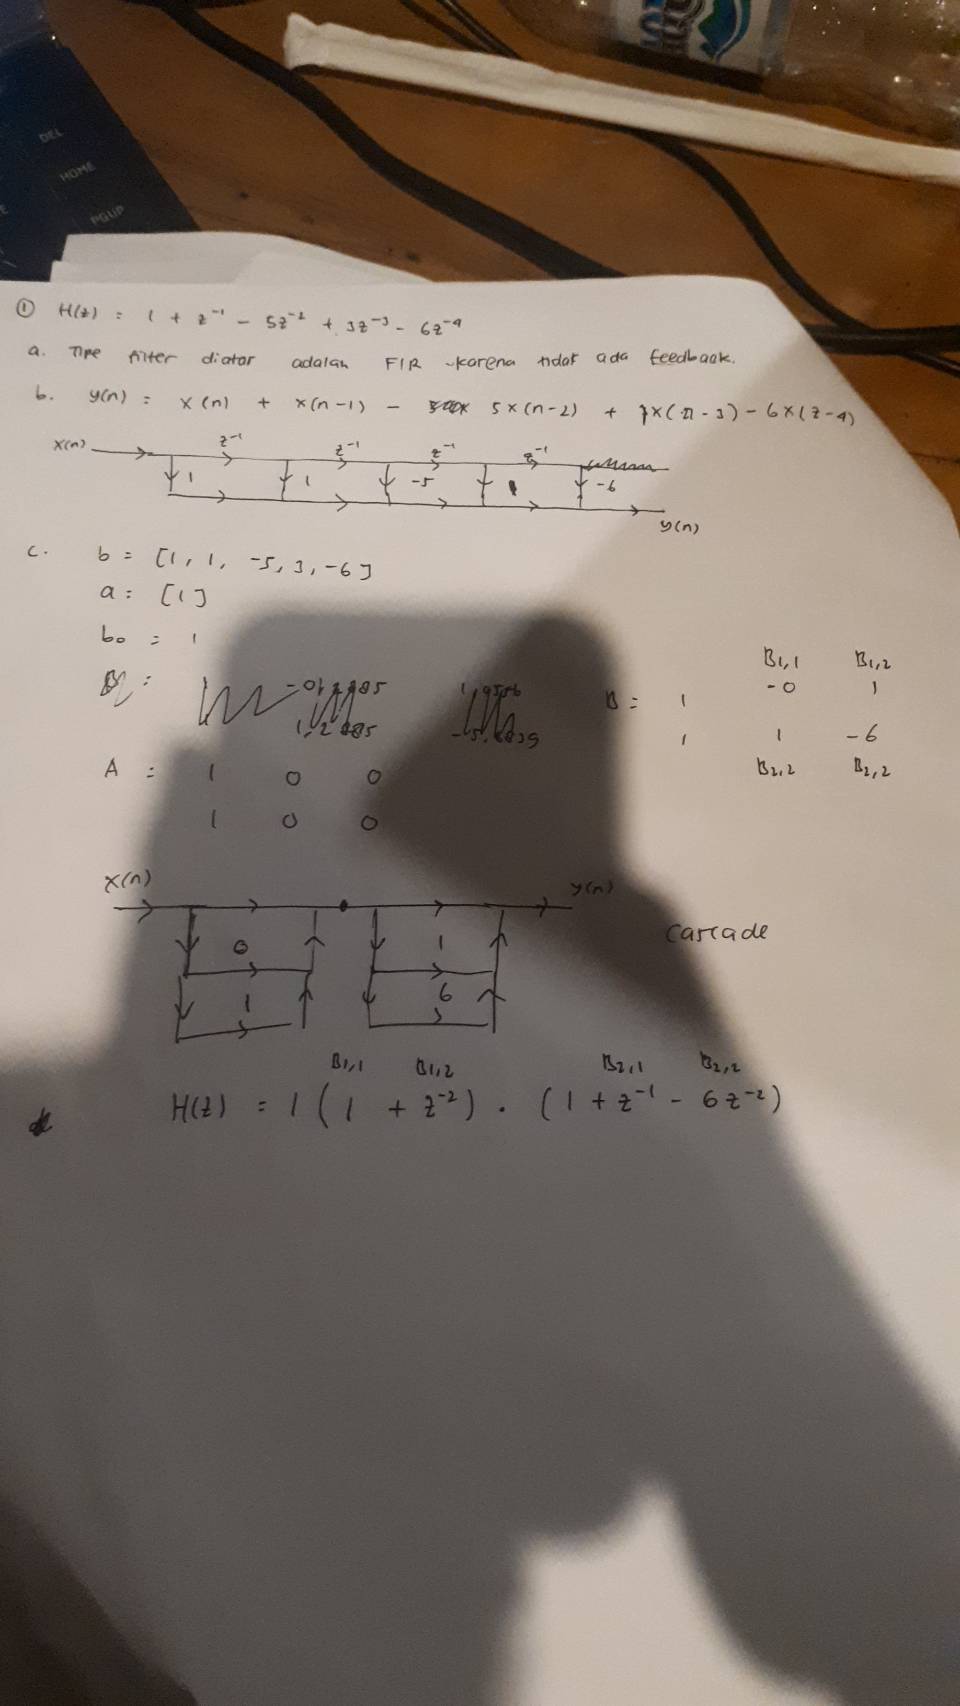 DEL
HOME
PGUP
① H(z) = 1 + z⁻¹ - 5z⁻² + 3z⁻³ - 6z⁻⁴
a. Tipe filter diatas adalah FIR karena tidak ada feedback.
b. y(n) = x(n) + x(n-1) - 5x(n-2) + 1x(n-3) - 6x(z-4)
x(n) z⁻¹ z⁻¹ z⁻¹ z⁻¹
1 1 -5 1 -6
y(n)
c. b = [1, 1, -5, 3, -6]
a = [1]
b₀ = 1
B₁,₁ B₁,₂
B = 1 -0 1
1 1 -6
B₂,₂ B₂,₂
A = 1 0 0
1 0 0
x(n) y(n)
0 1
1 6
cascade
B₁,₁ B₁,₂ B₂,₁ B₂,₂
H(z) = 1 (1 + z⁻²) . (1 + z⁻¹ - 6z⁻²)